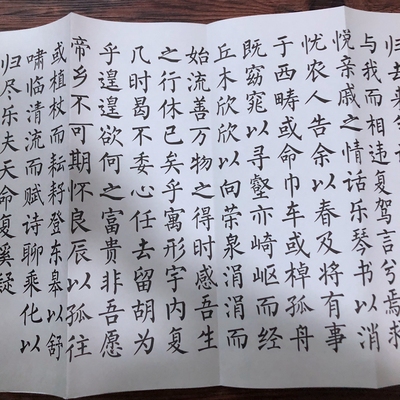 归去来兮
与我而相违复驾言兮焉求
悦亲戚之情话乐琴书以消
忧农人告余以春及将有事
于西畴或命巾车或棹孤舟
既窈窕以寻壑亦崎岖而经
丘木欣欣以向荣泉涓涓而
始流善万物之得时感吾生
之行休已矣乎寓形宇内复
几时曷不委心任去留胡为
乎遑遑欲何之富贵非吾愿
帝乡不可期怀良辰以孤往
或植杖而耘耔登东皋以舒
啸临清流而赋诗聊乘化以
归尽乐夫天命复奚疑